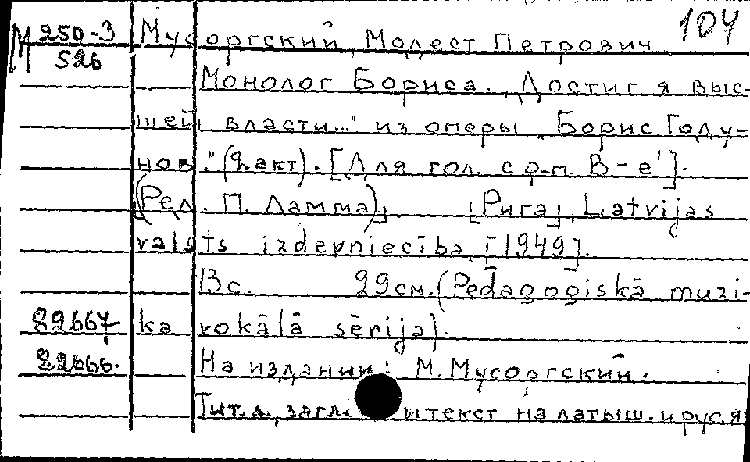 104
М 250-3 Мусоргский, Модест Петрович
526
Монолог Бориса. „Достиг я выс-
шей власти..." из оперы „Борис Году-
нов." (2 акт). [Для гол. с ф-п. B-e'].
(Ред. П. Ламма), [Рига], Latvijas
valsts izdevniecība, [1949].
13 с. 29 см. (Pedagogiskā muzi-
82667 ka vokālā sērija).
82666. На издании: М. Мусоргский.
Тит. л., загл. и текст на латыш. и рус. я